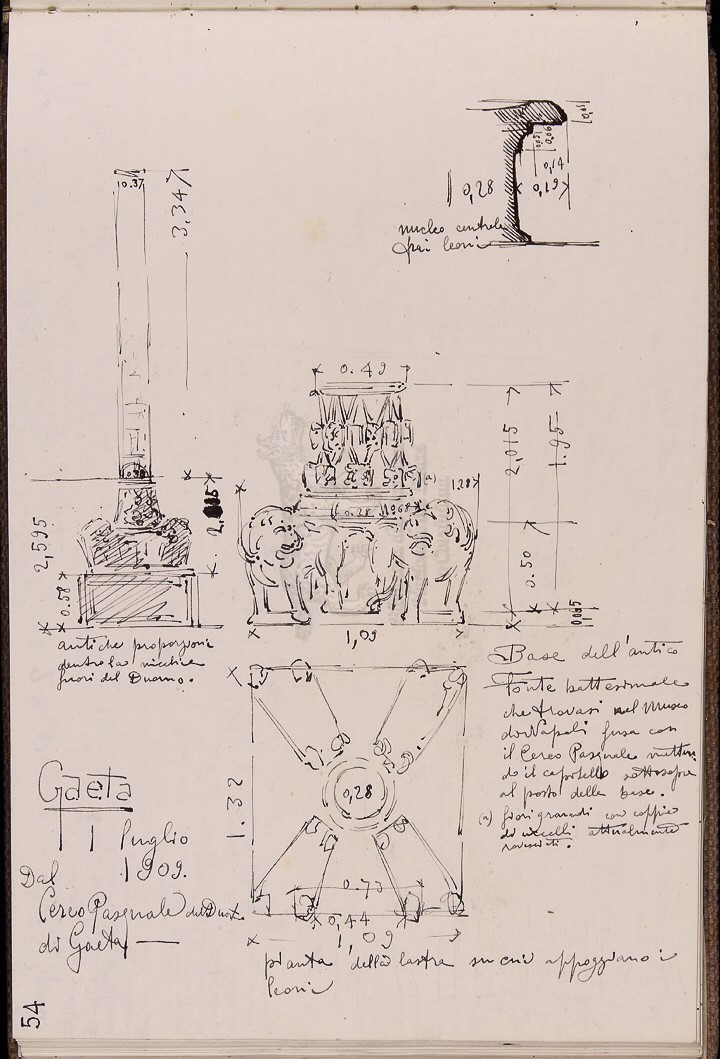 0.37
3,347
0,05
0,05
0,06
0,14
0,28
0,19
nucleo centrale
fra i leoni
0.49
2,015
1.95
(a)
128
0.28
0.68
2,595
0.58
0.50
0,085
1,09
antiche proporzioni
dentro la nicchia
fuori del Duomo.
Base dell'antico
Fonte battesimale
che trovasi nel Museo
di Napoli fusa con
il Cereo Pasquale metten
do il capitello sottosopra
al posto della base.
(a) fiori grandi con coppie
di uccelli attualmente
rovesciti.
1.32
0,28
0.73
0,44
1,09
Gaeta
1 Luglio
1909.
Dal
Cereo Pasquale del Duomo
di Gaeta —
pianta della lastra su cui appoggiano i
leoni
54